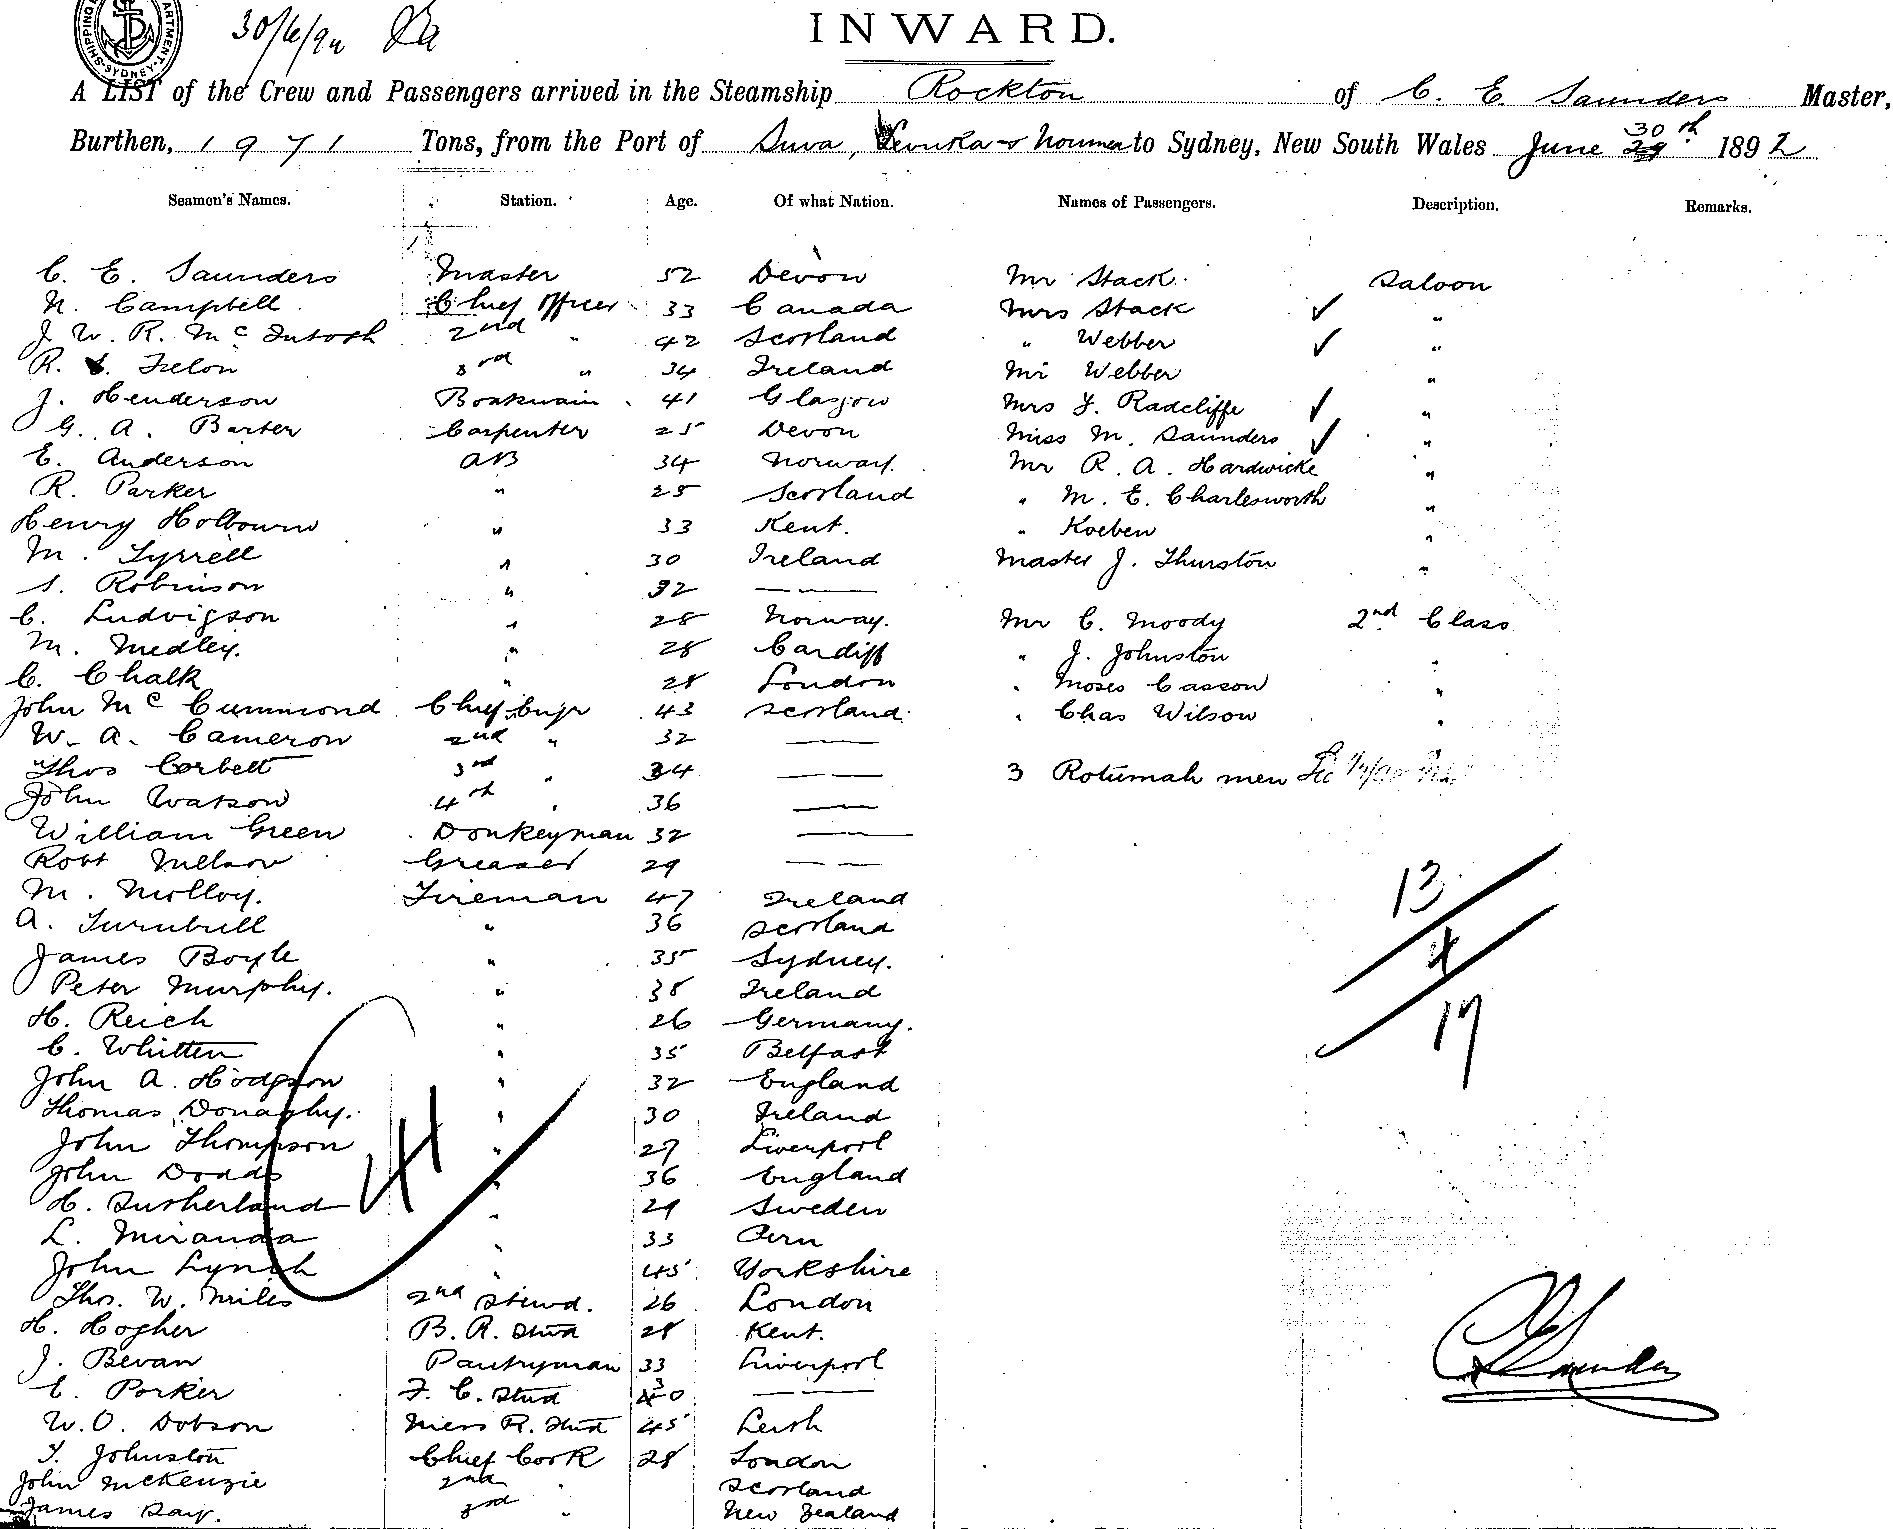 SHIPPING DEPARTMENT SYDNEY
30/6/92
INWARD.
A LIST of the Crew and Passengers arrived in the Steamship Rockton of C. E. Saunders Master,
Burthen, 1971 Tons, from the Port of Suva, Levuka & Noumea to Sydney, New South Wales June 30th 1892
Seamen's Names. Station. Age. Of what Nation. Names of Passengers. Description. Remarks.
C. E. Saunders Master 52 Devon Mr Stack Saloon
N. Campbell Chief Officer 33 Canada Mrs Stack ✓ "
J. W. R. McIntosh 2nd " 42 Scotland " Webber ✓ "
R. 3rd " 34 Ireland Mr Webber "
J. Henderson Boatswain 41 Glasgow Mrs Y. Radcliffe ✓ "
G. A. Barter Carpenter 25 Devon Miss M. Saunders ✓ "
E. Anderson AB 34 Norway. Mr R. A. Hardwicke "
R. Parker " 25 Scotland " M. E. Charlesworth "
Henry Holbourn " 33 Kent. " Koeben "
M. Tyrrell " 30 Ireland Master J. Thurston "
S. Robinson " 32 ——
C. Ludvigson " 28 Norway. Mr C. Moody 2nd Class
M. Medley. " 28 Cardiff " J. Johnston "
C. Chalk " 28 London " Moses Casson "
John McCummond Chief Engr 43 Scotland " Chas Wilson "
W. A. Cameron 2nd " 32 ——
Thos Corbett 3rd " 34 —— 3 Rotumah men
John Watson 4th " 36 ——
William Green Donkeyman 32 ——
Robt Nelson Greaser 29 ——
M. Molloy. Fireman 47 Ireland 13
A. Turnbull " 36 Scotland
James Boyle " 35 Sydney. 4
Peter Murphy. " 38 Ireland
H. Reich " 26 Germany. 17
C. Whitten " 35 Belfast
John A. Hodgson " 32 England
Thomas Donaghy. " 30 Ireland
John Thompson " 27 Liverpool
John Dodds " 36 England
H. Sutherland " 29 Sweden
L. Miranda " 33 Peru
John Lynch " 45 Yorkshire
Thos. W. Miles 2nd Stewd. 26 London
H. Hogher B. R. Stwd 28 Kent.
J. Bevan Pantryman 33 Liverpool
C. Porker F. C. Stwd 30 ——
W. O. Dobson Mess R. Stwd 45 Leith
T. Johnston Chief Cook 28 London
John McKenzie 2nd Scotland
James Day. 3rd " New Zealand
C E Saunders